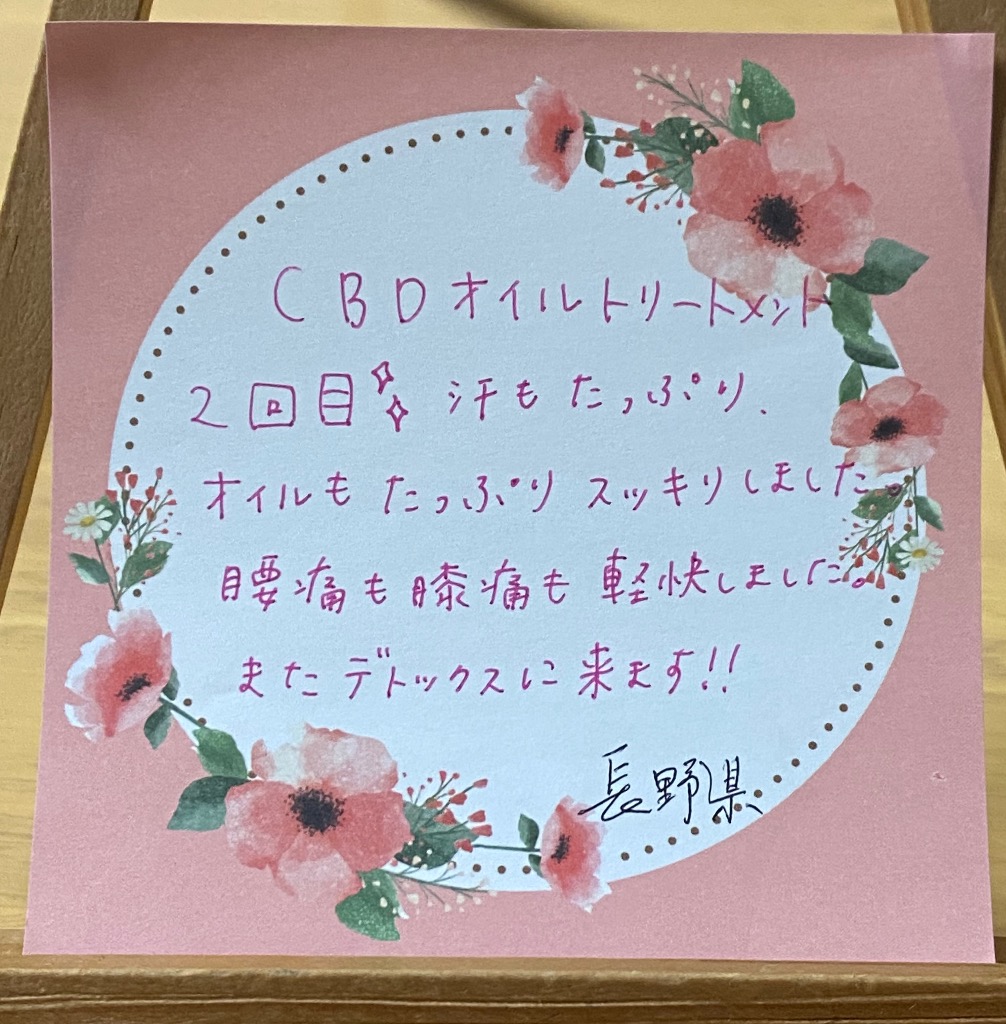 CBDオイルトリートメント
2回目✧✧ 汗もたっぷり、
オイルもたっぷりスッキリしました。
腰痛も膝痛も軽快しました。
またデトックスに来ます!!
長野県